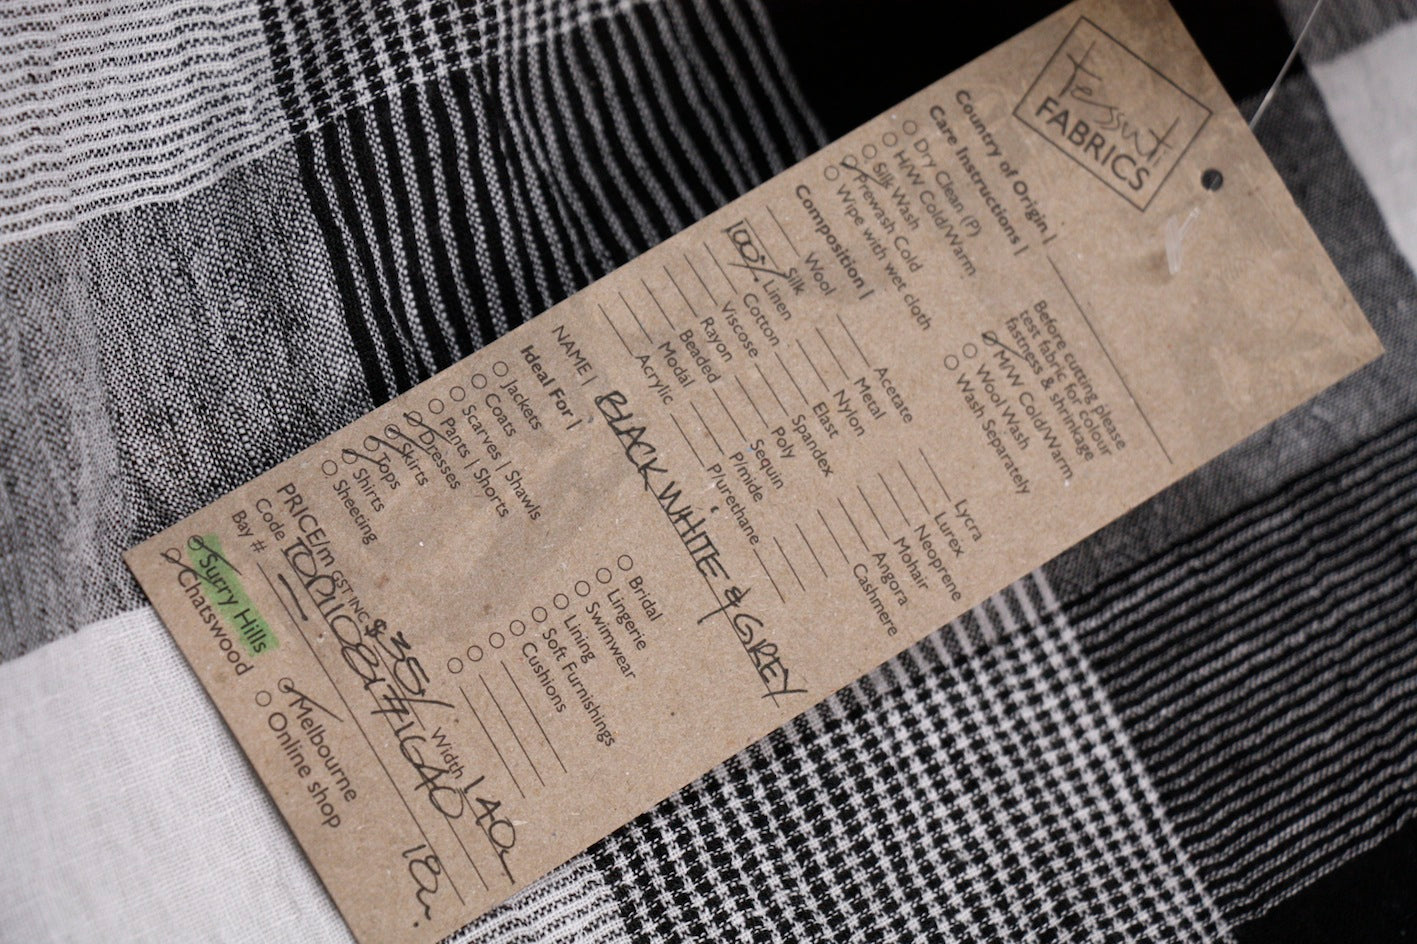 tessuti
FABRICS
Country of Origin |
Care Instructions |
Dry Clean (P)
H/W Cold/Warm
Silk Wash
Prewash Cold
Wipe with wet cloth
Before cutting please
test fabric for colour
fastness & shrinkage
M/W Cold/Warm
Wool Wash
Wash Separately
Composition |
Wool
Silk
100% Linen
Cotton
Viscose
Rayon
Beaded
Modal
Acrylic
Acetate
Metal
Nylon
Elast
Spandex
Poly
Sequin
P/mide
P/urethane
Lycra
Lurex
Neoprene
Mohair
Angora
Cashmere
NAME | BLACK WHITE & GREY
Ideal For |
Jackets
Coats
Scarves | Shawls
Pants | Shorts
Dresses
Skirts
Tops
Shirts
Sheeting
Bridal
Lingerie
Swimwear
Lining
Soft Furnishings
Cushions
PRICE/m GST INC $ 35/ Width 140
Code
Bay #
Surry Hills
Chatswood
Melbourne
Online shop